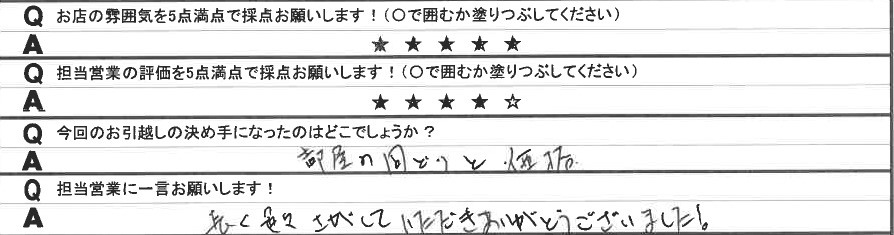 Q お店の雰囲気を5点満点で採点お願いします！（○で囲むか塗りつぶしてください）
A ★ ★ ★ ★ ★
Q 担当営業の評価を5点満点で採点お願いします！（○で囲むか塗りつぶしてください）
A ★ ★ ★ ★ ☆
Q 今回のお引越しの決め手になったのはどこでしょうか？
A 部屋の間どりと価格
Q 担当営業に一言お願いします！
A 色々さがしていただきありがとうございました！